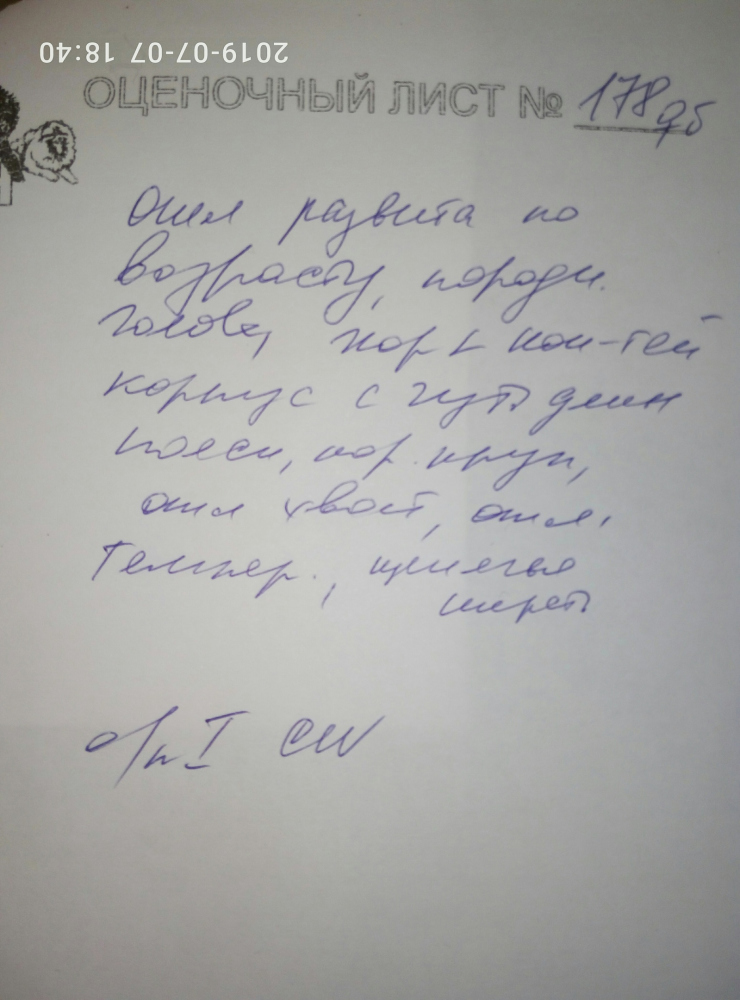 2019-07-07 18:40
ОЦЕНОЧНЫЙ ЛИСТ № 178
Отл развита по
возрасту, породн.
голова, хор к кон-тей
корпус с чуть длин
поясн, хор. круп,
отл хвост, отл.
Темпер., прилегая
шерсть
о/п I CW